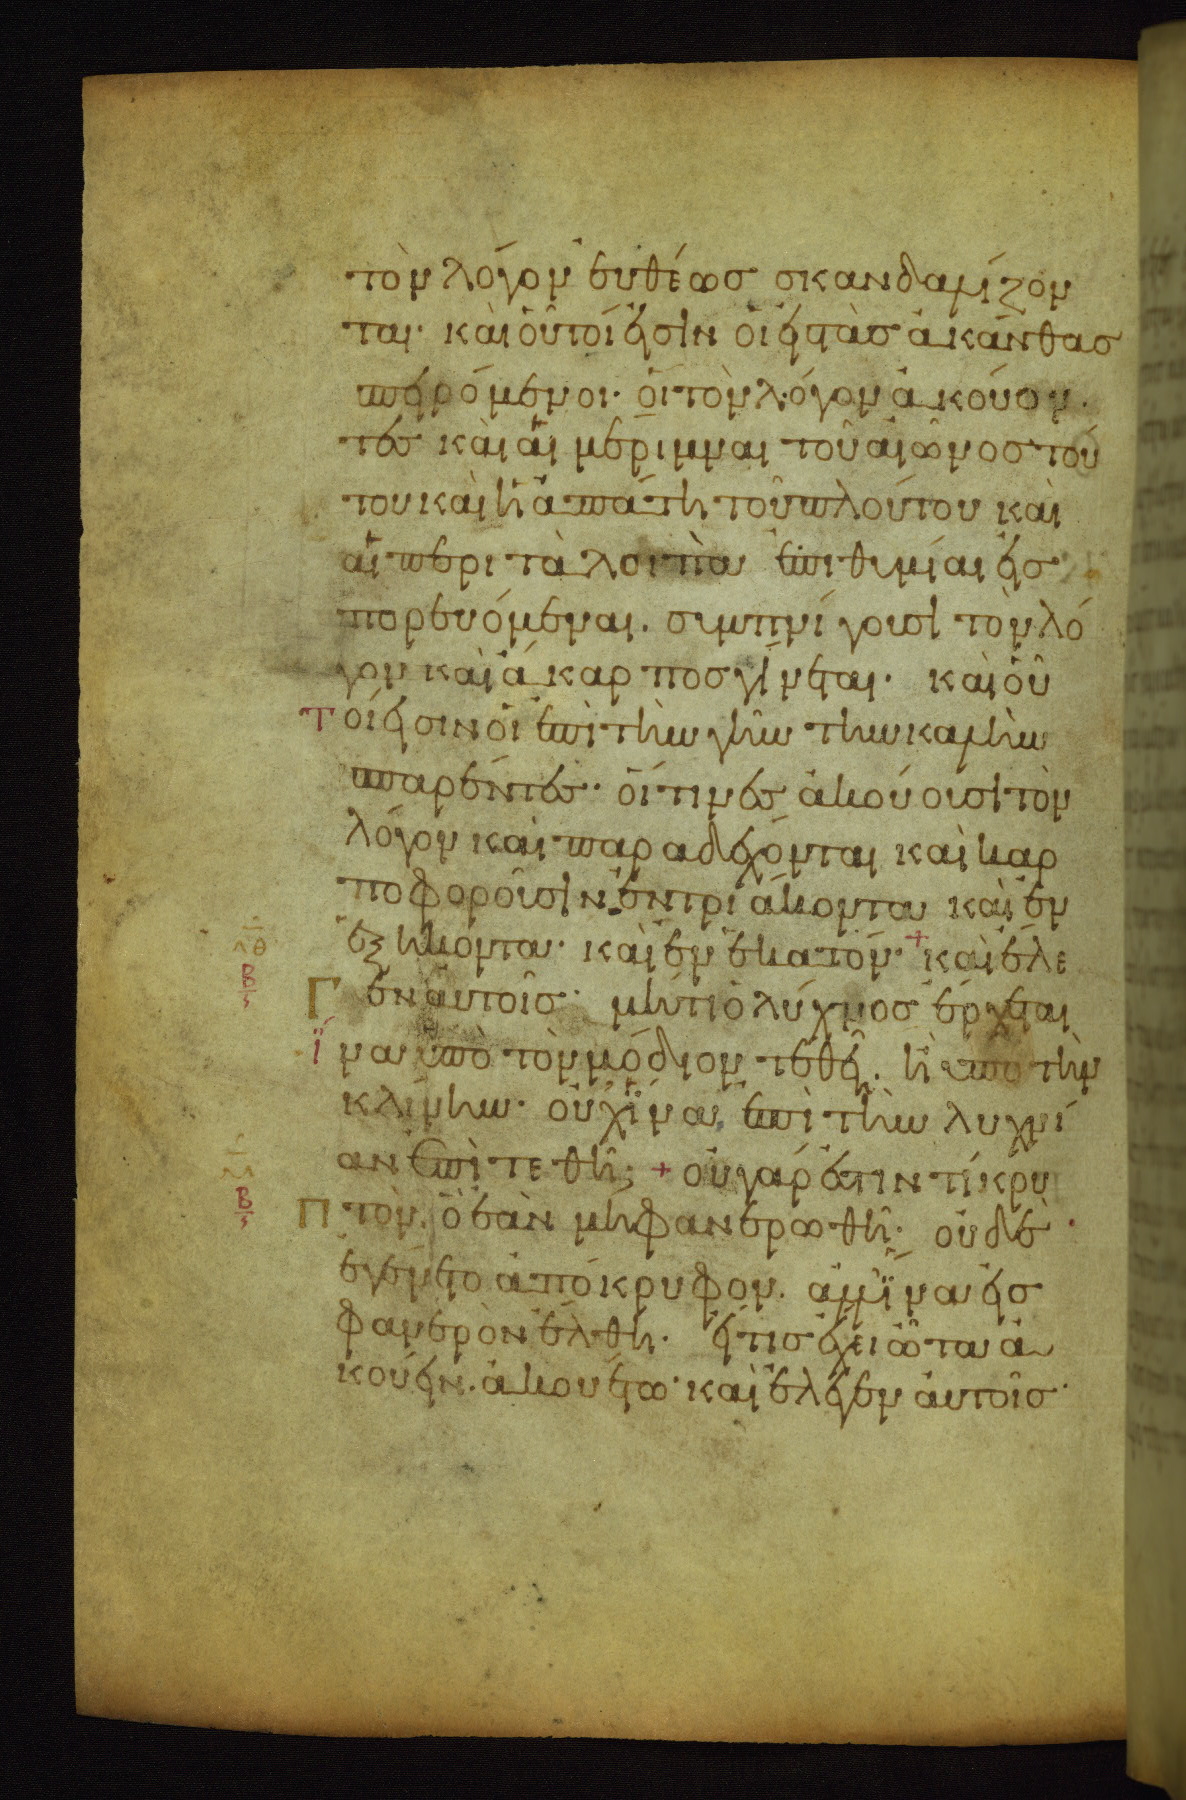 τὸν λόγον εὐθέωσ σκανδαλίζον
ται· καὶ οὗτοί εἰσιν οἱ εἰς τὰσ ἀκάνθασ
σπειρόμενοι· οἱ τὸν λόγον ἀκούον
τεσ καὶ αἱ μέριμναι τοῦ αἰῶνοσ τού
του καὶ ἡ ἀπάτη τοῦ πλούτου καὶ
αἱ περι τὰ λοιπὰ ἐπιθυμίαι εἰσ
πορευόμεναι. συμπνίγουσι τὸν λό
γον καὶ ἄκαρποσ γίνεται· καὶ οὗ
τοί εἰσιν οἱ ἐπὶ τὴν γῆν τὴν καλὴν
σπαρέντεσ· οἵτινεσ ἀκούουσι τὸν
λόγον καὶ παραδέχονται καὶ καρ
ποφοροῦσιν. ἐν τριάκοντα καὶ ἐν
ἑξήκοντα· καὶ ἐν ἑκατόν· + καὶ ἔλε
Γ εν αὐτοῖσ· μήτι ὁ λύχνοσ ἔρχεται
ἵ να ὑπὸ τὸν μόδιον τεθῆ. ἢ ὑπὸ τὴν
κλίνην· οὐχ ἵνα ἐπὶ τὴν λυχνί
αν ἐπιτεθῆ; + οὐ γάρ ἐστιν τί κρυ
Π τὸν. ὃ ἐὰν μὴ φανερωθῆ· οὐδὲ
ἐγένετο ἀπόκρυφον. ἀλλ' ἵνα εἰσ
φανερὸν ἔλθη. εἴ τισ ἔχει ὦτα ἀ
κούειν. ἀκουέτω· καὶ ἔλεγεν αὐτοῖσ·